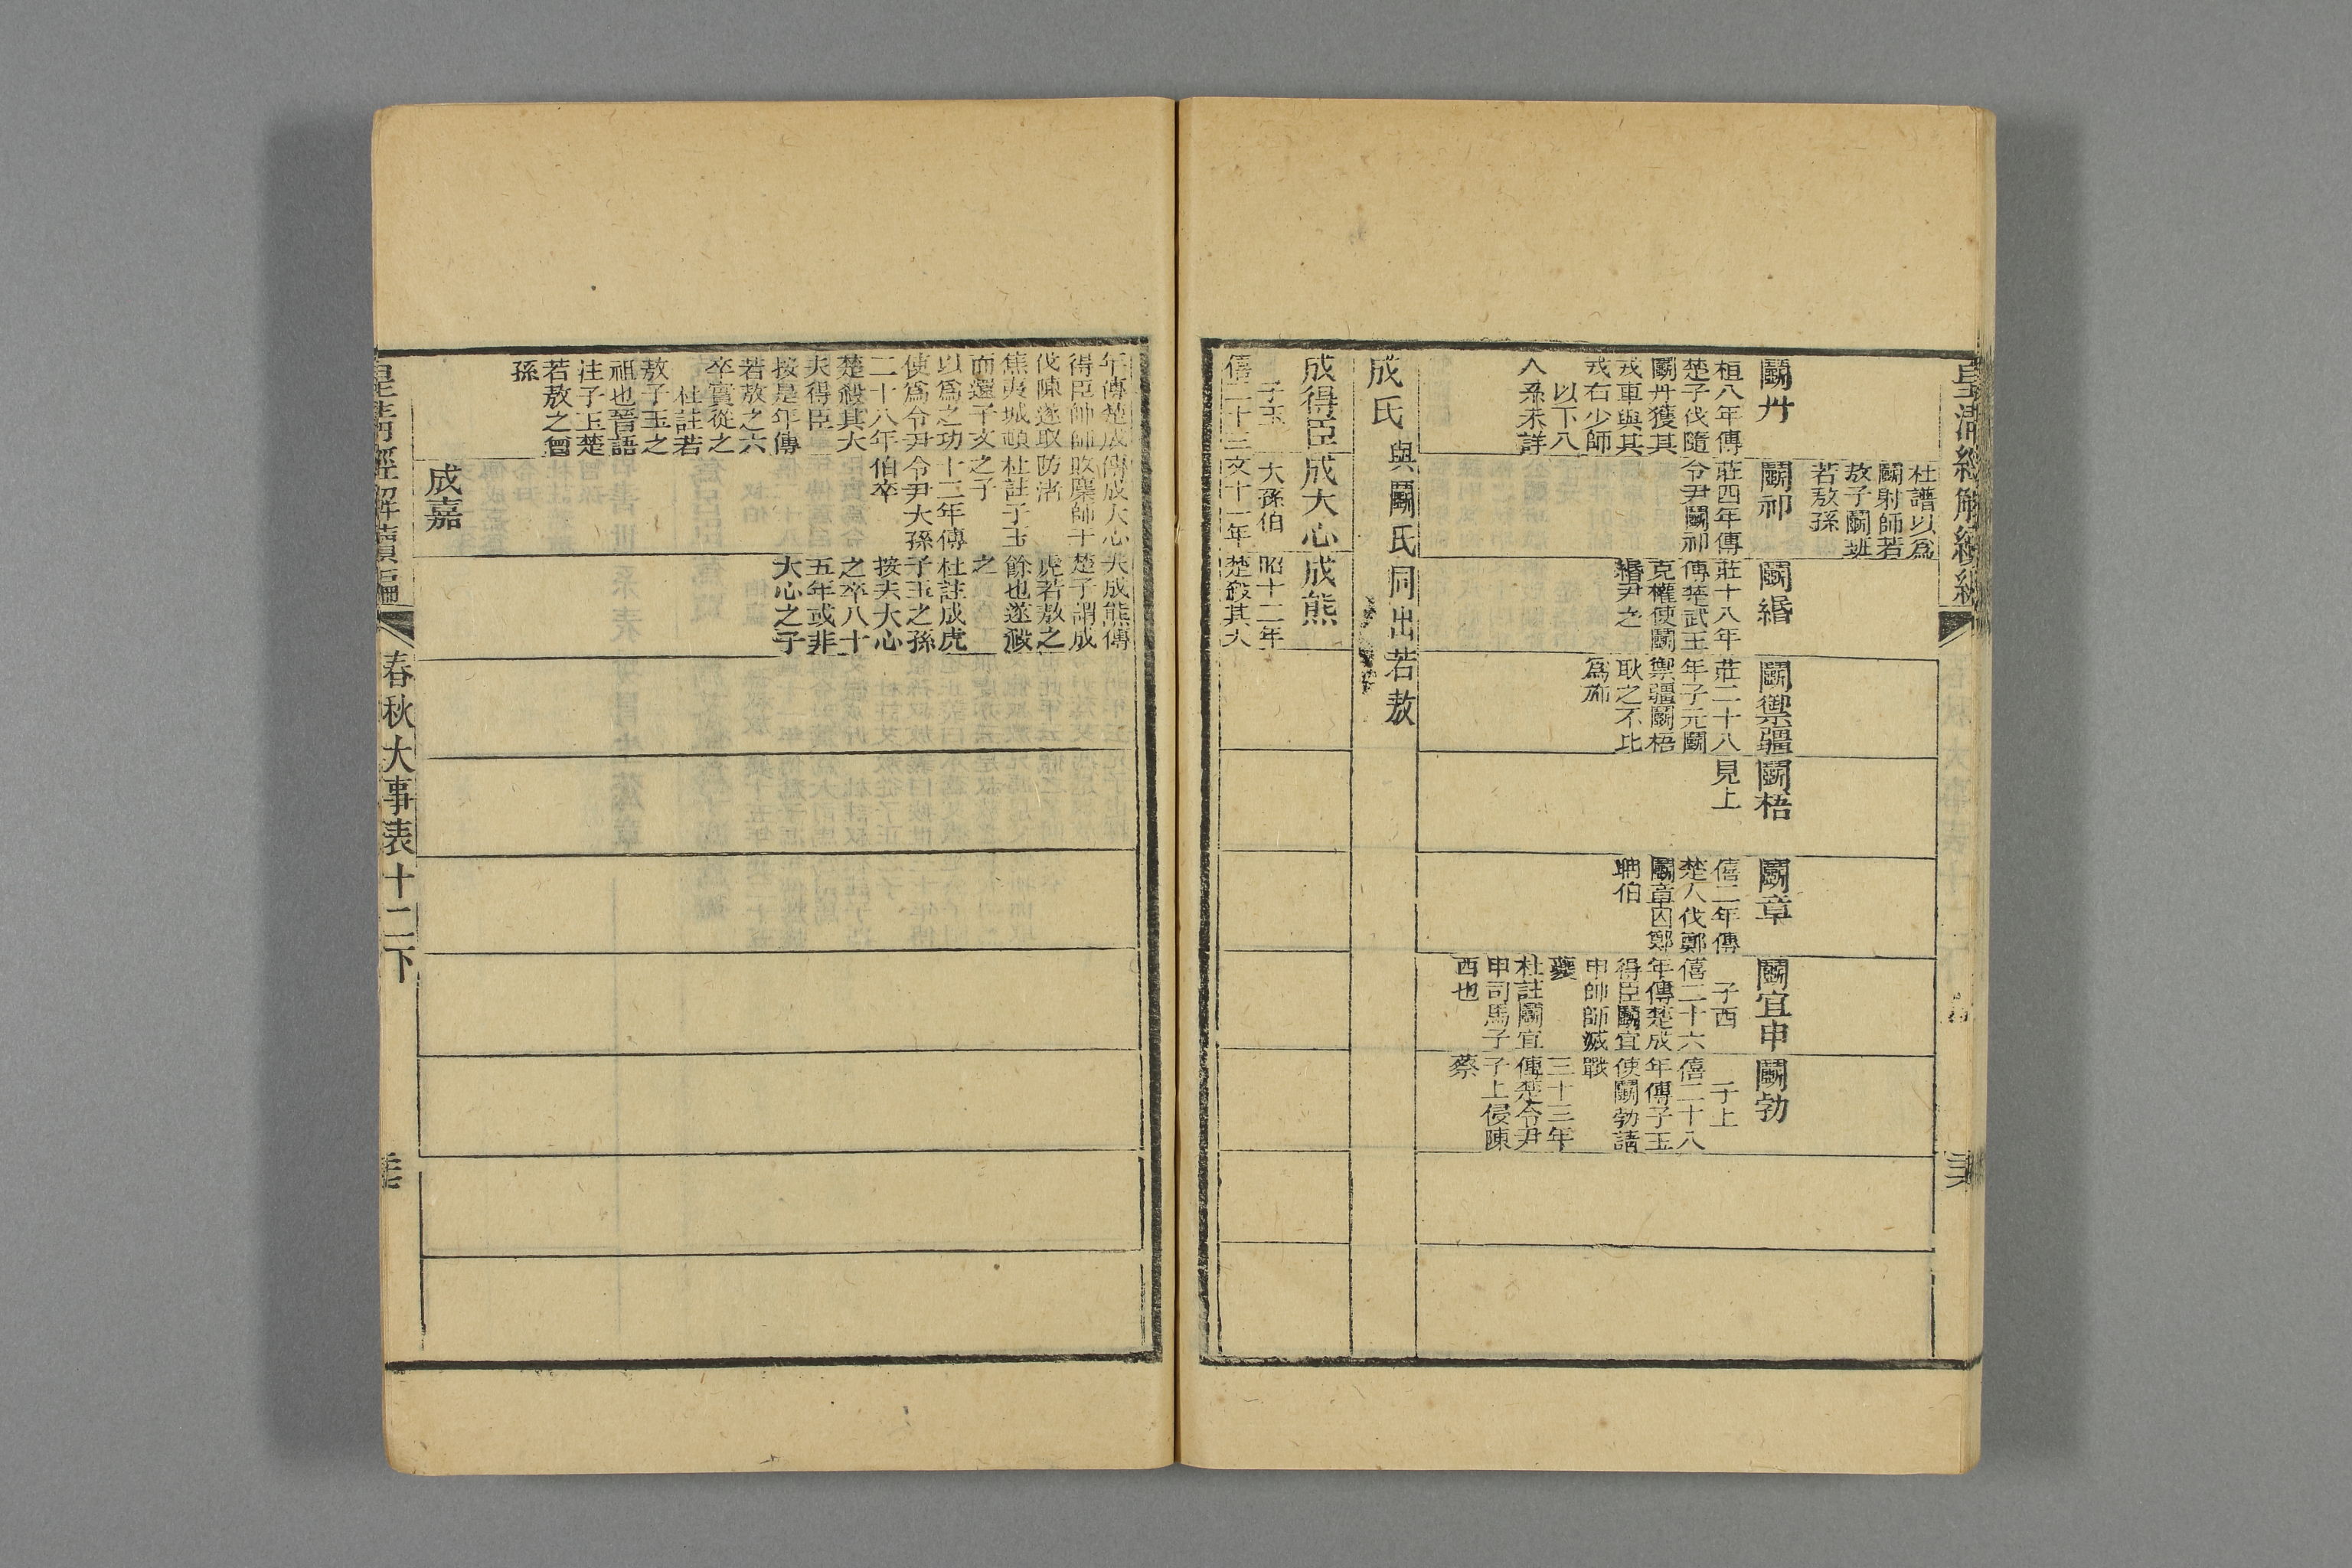 皇清經解續編
杜譜以爲
鬬射師若
敖子鬬班
若敖孫
鬬丹
桓八年傳
楚子伐隨
鬬丹獲其
戎車與其
戎右少師
以下八
人系未詳
鬬祁
莊四年傳
令尹鬬祁
鬬緡
莊十八年
傳楚武王
克權使鬬
緡尹之
鬬禦疆
莊二十八
年子元鬬
禦疆鬬梧
耿之不比
爲旆
鬬梧
見上
鬬章
僖二年傳
楚人伐鄭
鬬章囚鄭
聃伯
鬬宜申
子西
僖二十六
年傳楚成
得臣鬬宜
申帥師滅
夔
杜註鬬宜
申司馬子
西也
鬬勃
子上
僖二十八
年傳子玉
使鬬勃請
戰
三十三年
傳楚令尹
子上侵陳
蔡
成氏 與鬬氏同出若敖
成得臣
子玉
僖二十三
成大心
大孫伯
文十一年
成熊
昭十二年
楚殺其大
年傳楚成
得臣帥師
伐陳遂取
焦夷城頓
而還子文
以爲之功
使爲令尹
二十八年
楚殺其大
夫得臣
按是年傳
若敖之六
卒實從之
杜註若
敖子玉之
祖也晉語
注子玉楚
若敖之曾
孫
傳成大心
敗麇師于
防渚
杜註子玉
之子
十二年傳
令尹大孫
伯卒
夫成熊傳
楚子謂成
虎若敖之
餘也遂殺
之
杜註成虎
子玉之孫
按去大心
之卒八十
五年或非
大心之子
成嘉
皇清經解續編
春秋大事表十二下